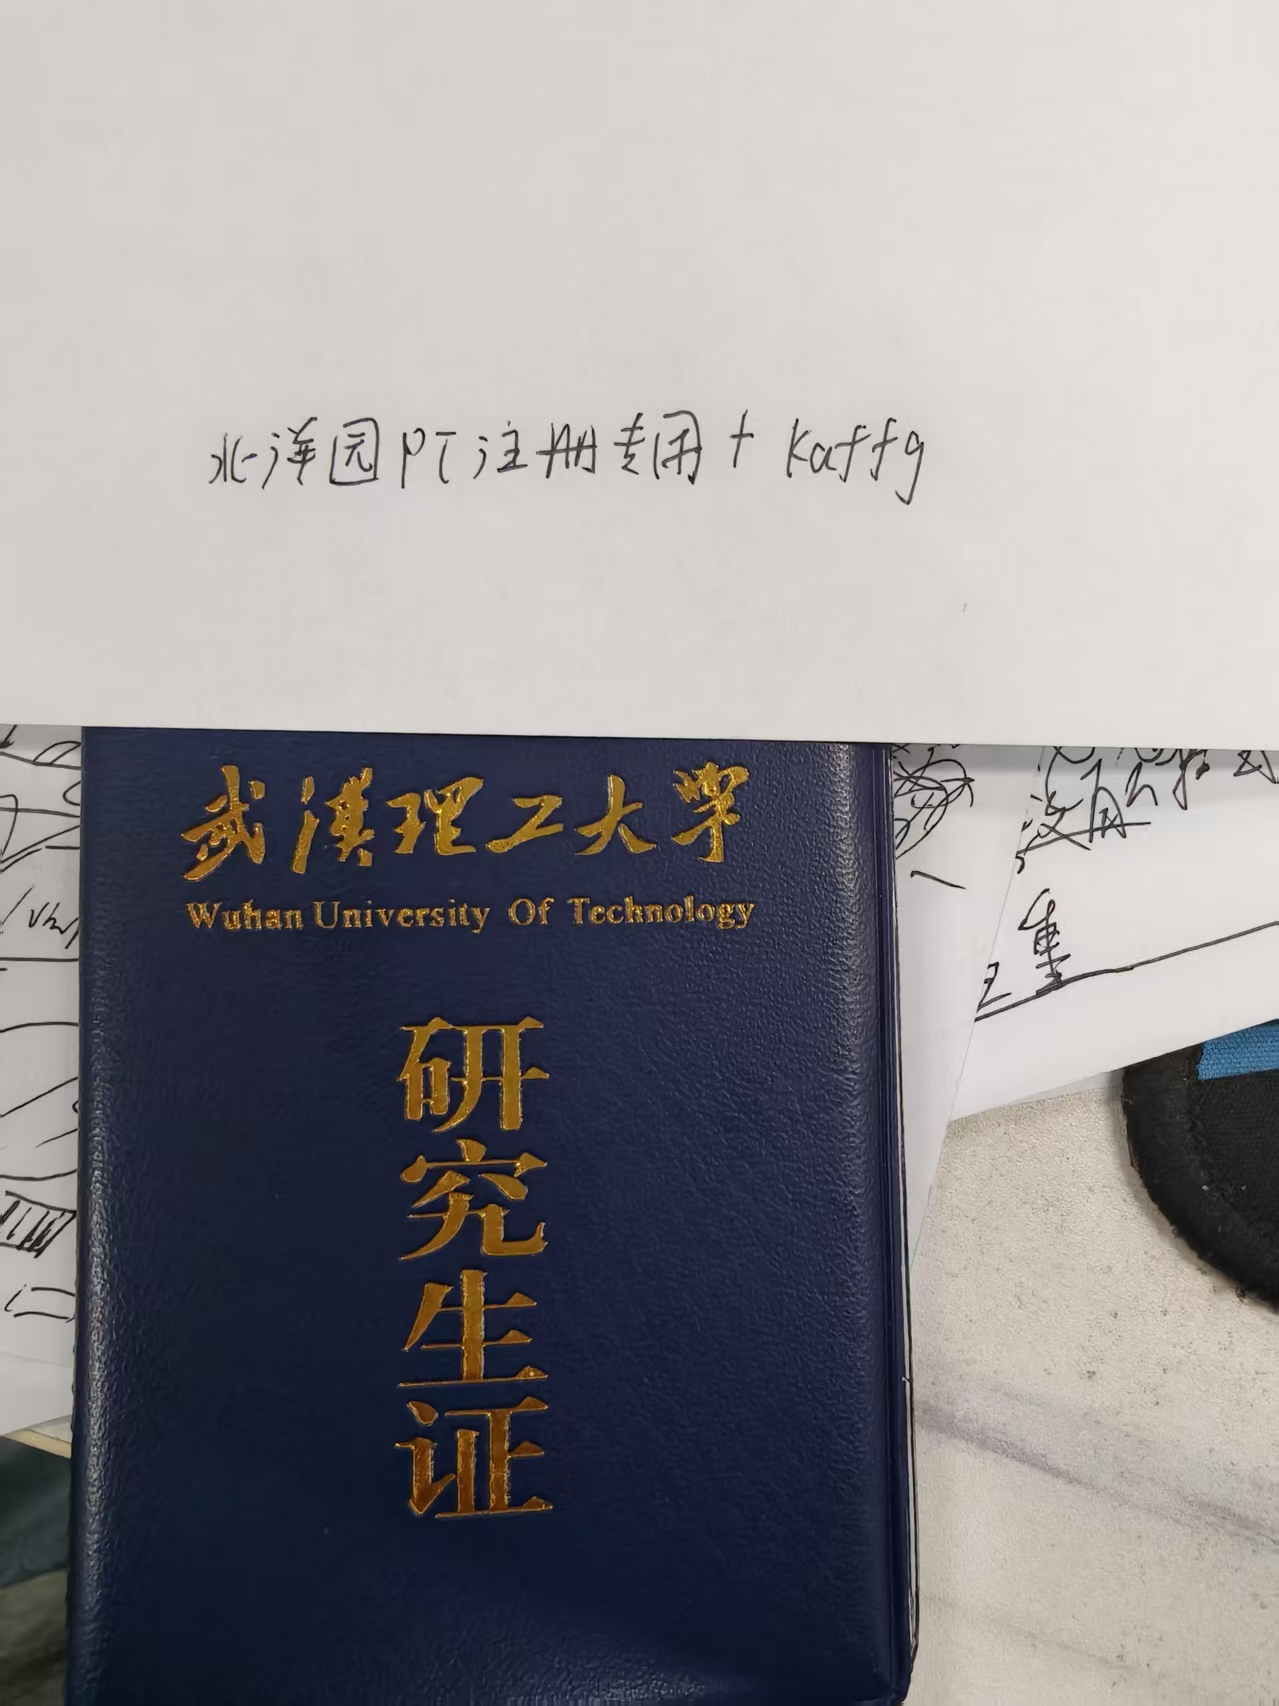 北洋园PT注册专用+kaffg
武汉理工大学
Wuhan University Of Technology
研究生证